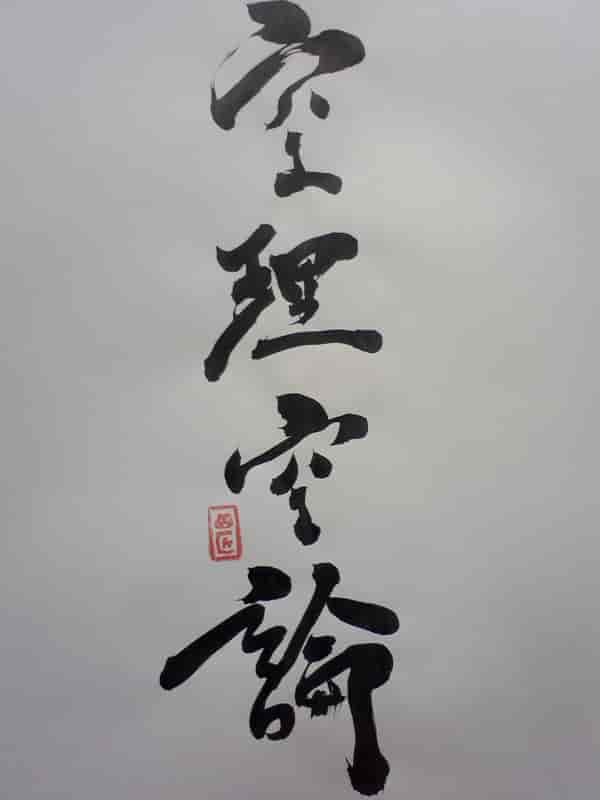 空理空論